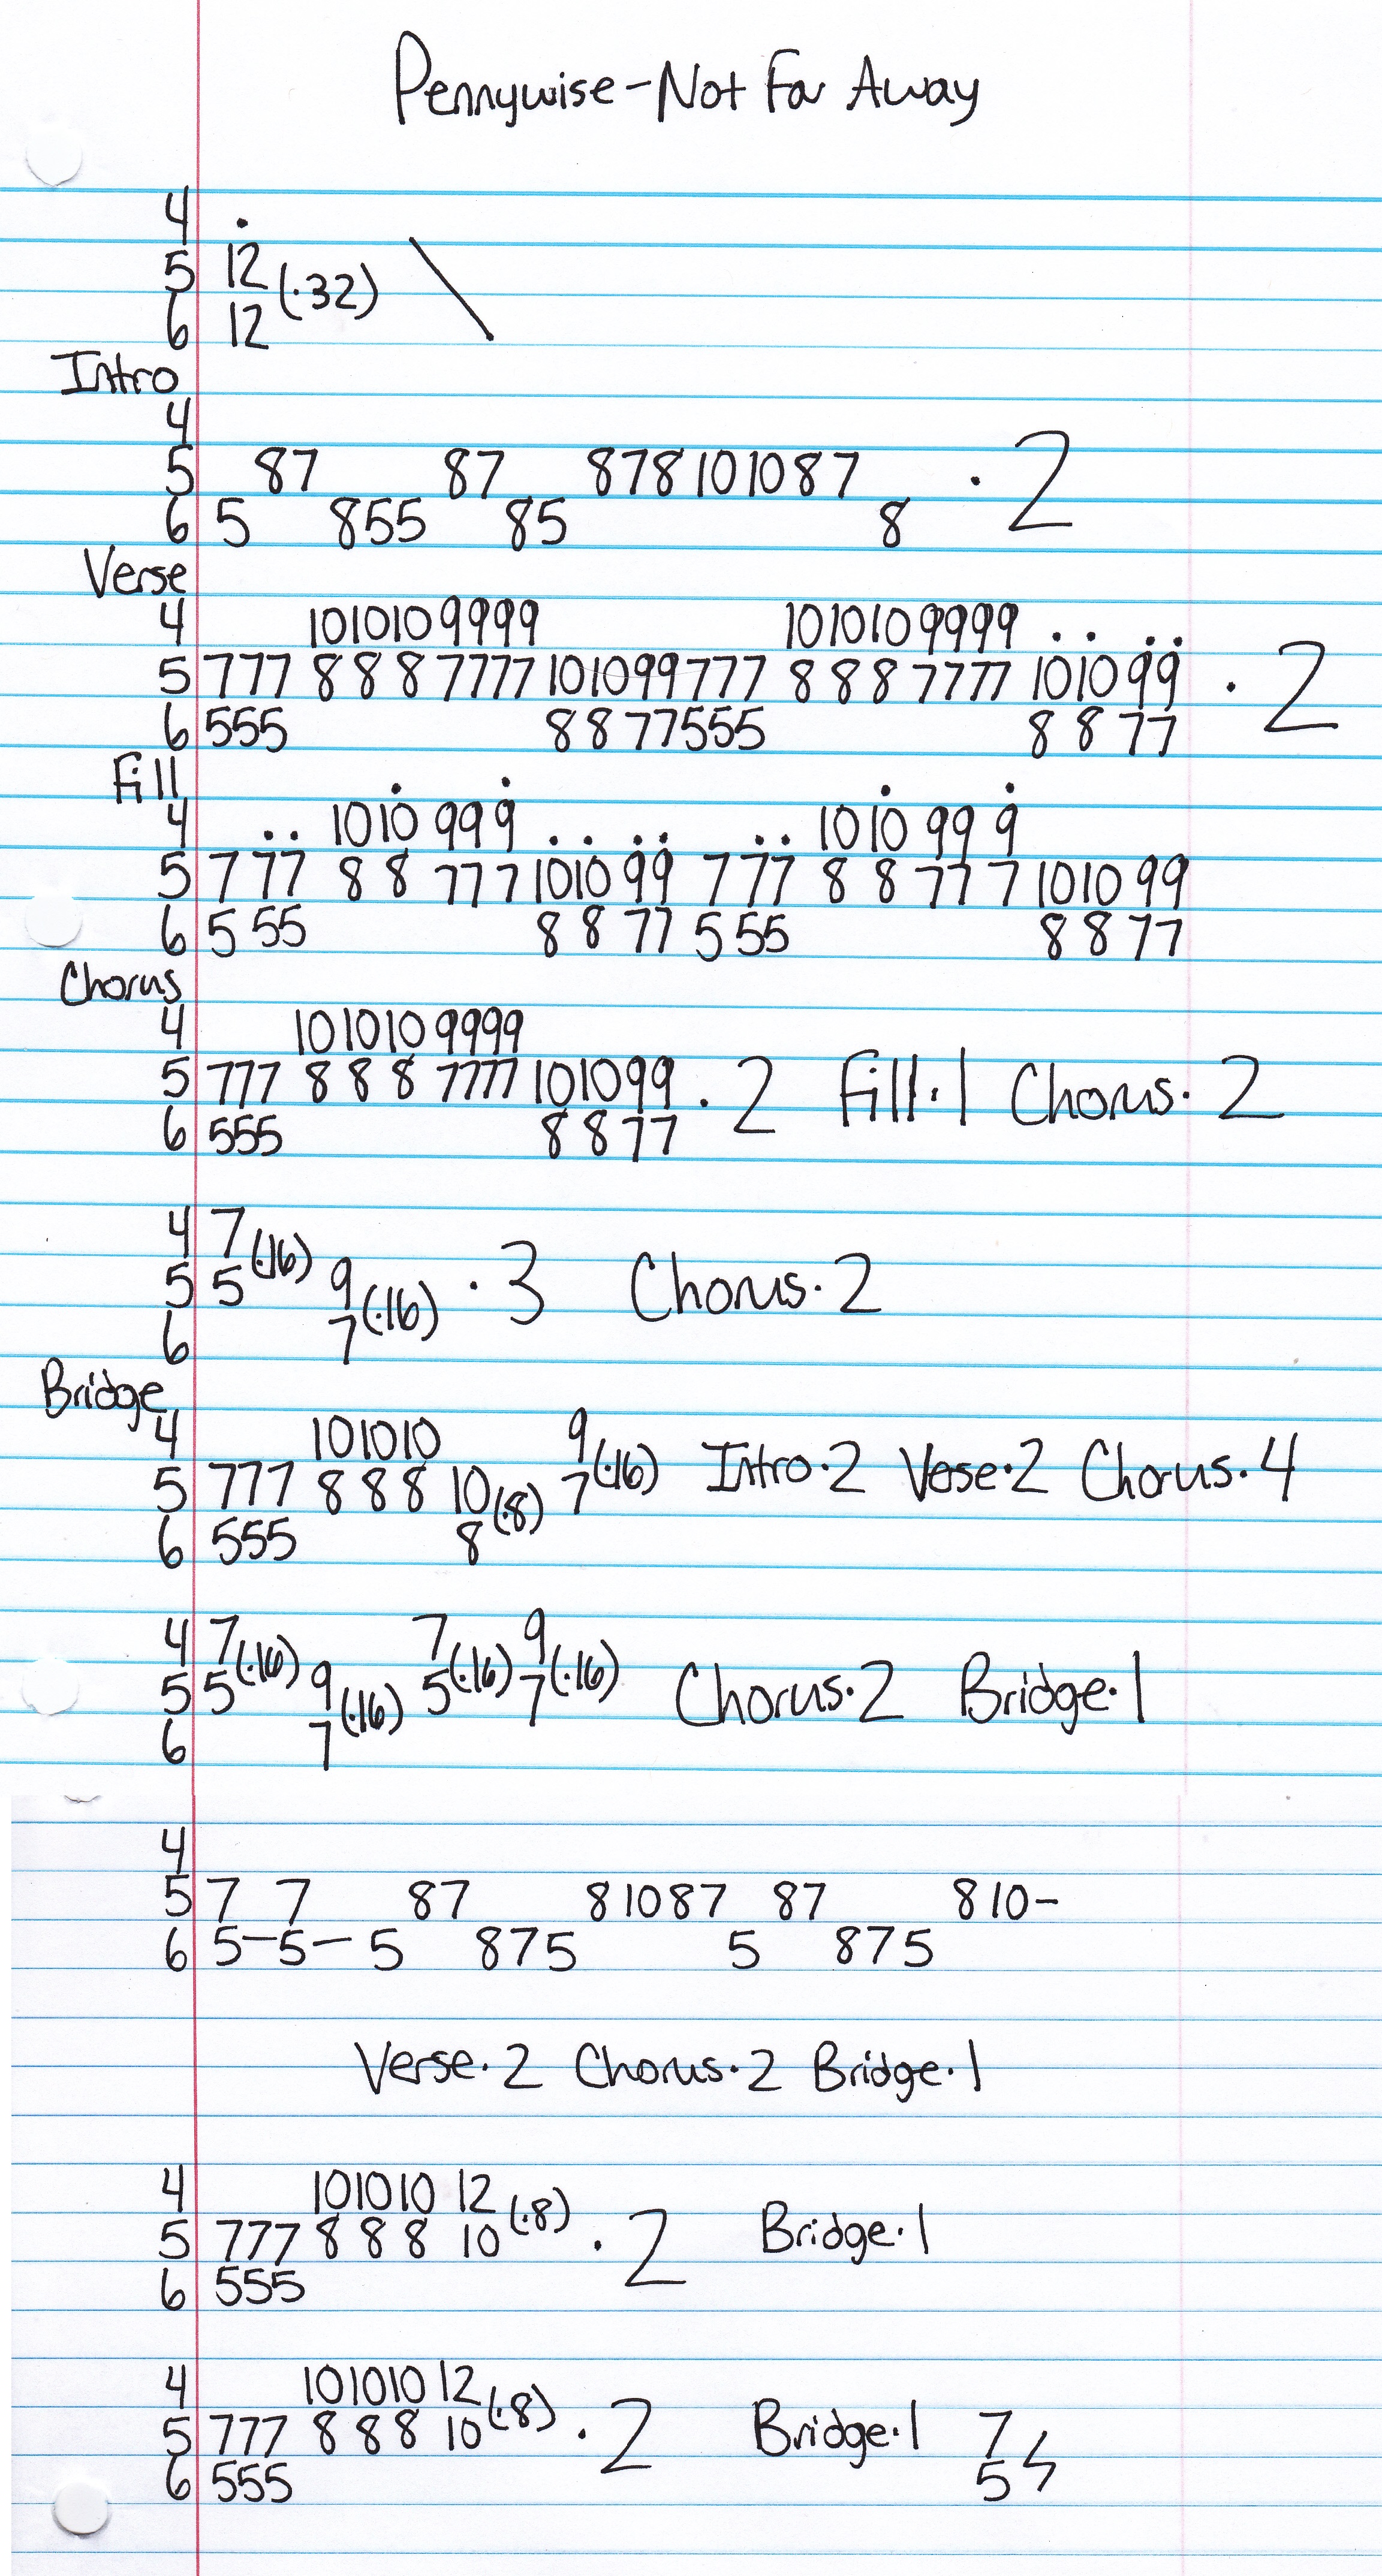 Pennywise - Not Far Away
4 .
5 12 (·32) \
6 12
Intro
4
5 87 87 878101087 · 2
6 5 855 85 8
Verse
4 1010109999 1010109999 . . . .
5 777 8 8 8 7777 101099777 8 8 8 7777 1010 99 · 2
6 555 8 8 77555 8 8 77
Fill
4 . . 1010 99 9 . . . . . . 1010 99 9
5 7 77 8 8 77 7 1010 99 7 77 8 8 77 7 1010 99
6 5 55 8 8 77 5 55 8 8 77
Chorus
4 101010 9999
5 777 8 8 8 7777 101099 · 2 Fill · 1 Chorus · 2
6 555 8 8 77
4 7 (·16)
5 5 9 (·16) · 3 Chorus · 2
6 7
Bridge
4 101010 9 (·16) Intro · 2 Verse · 2 Chorus · 4
5 777 8 8 8 10 (·8) 7
6 555 8
4 7 (·16) 7 (·16) 9 (·16)
5 5 9 (·16) 5 7 Chorus · 2 Bridge · 1
6 7
4
5 7 7 87 81087 87 810-
6 5-5- 5 875 5 875
Verse · 2 Chorus · 2 Bridge · 1
4 101010 12 (·8)
5 777 8 8 8 10 · 2 Bridge · 1
6 555
4 101010 12 (·8)
5 777 8 8 8 10 · 2 Bridge · 1 7
6 555 5